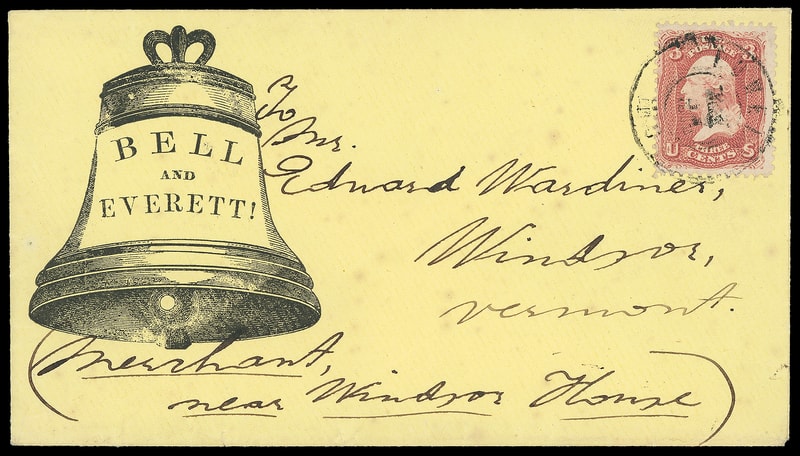 BELL
AND
EVERETT!
To
Mr.
Edward Wardiner,
Windsor,
Vermont.
(Merchant,
near Windsor House)
3 3
POSTAGE
U THREE S
CENTS